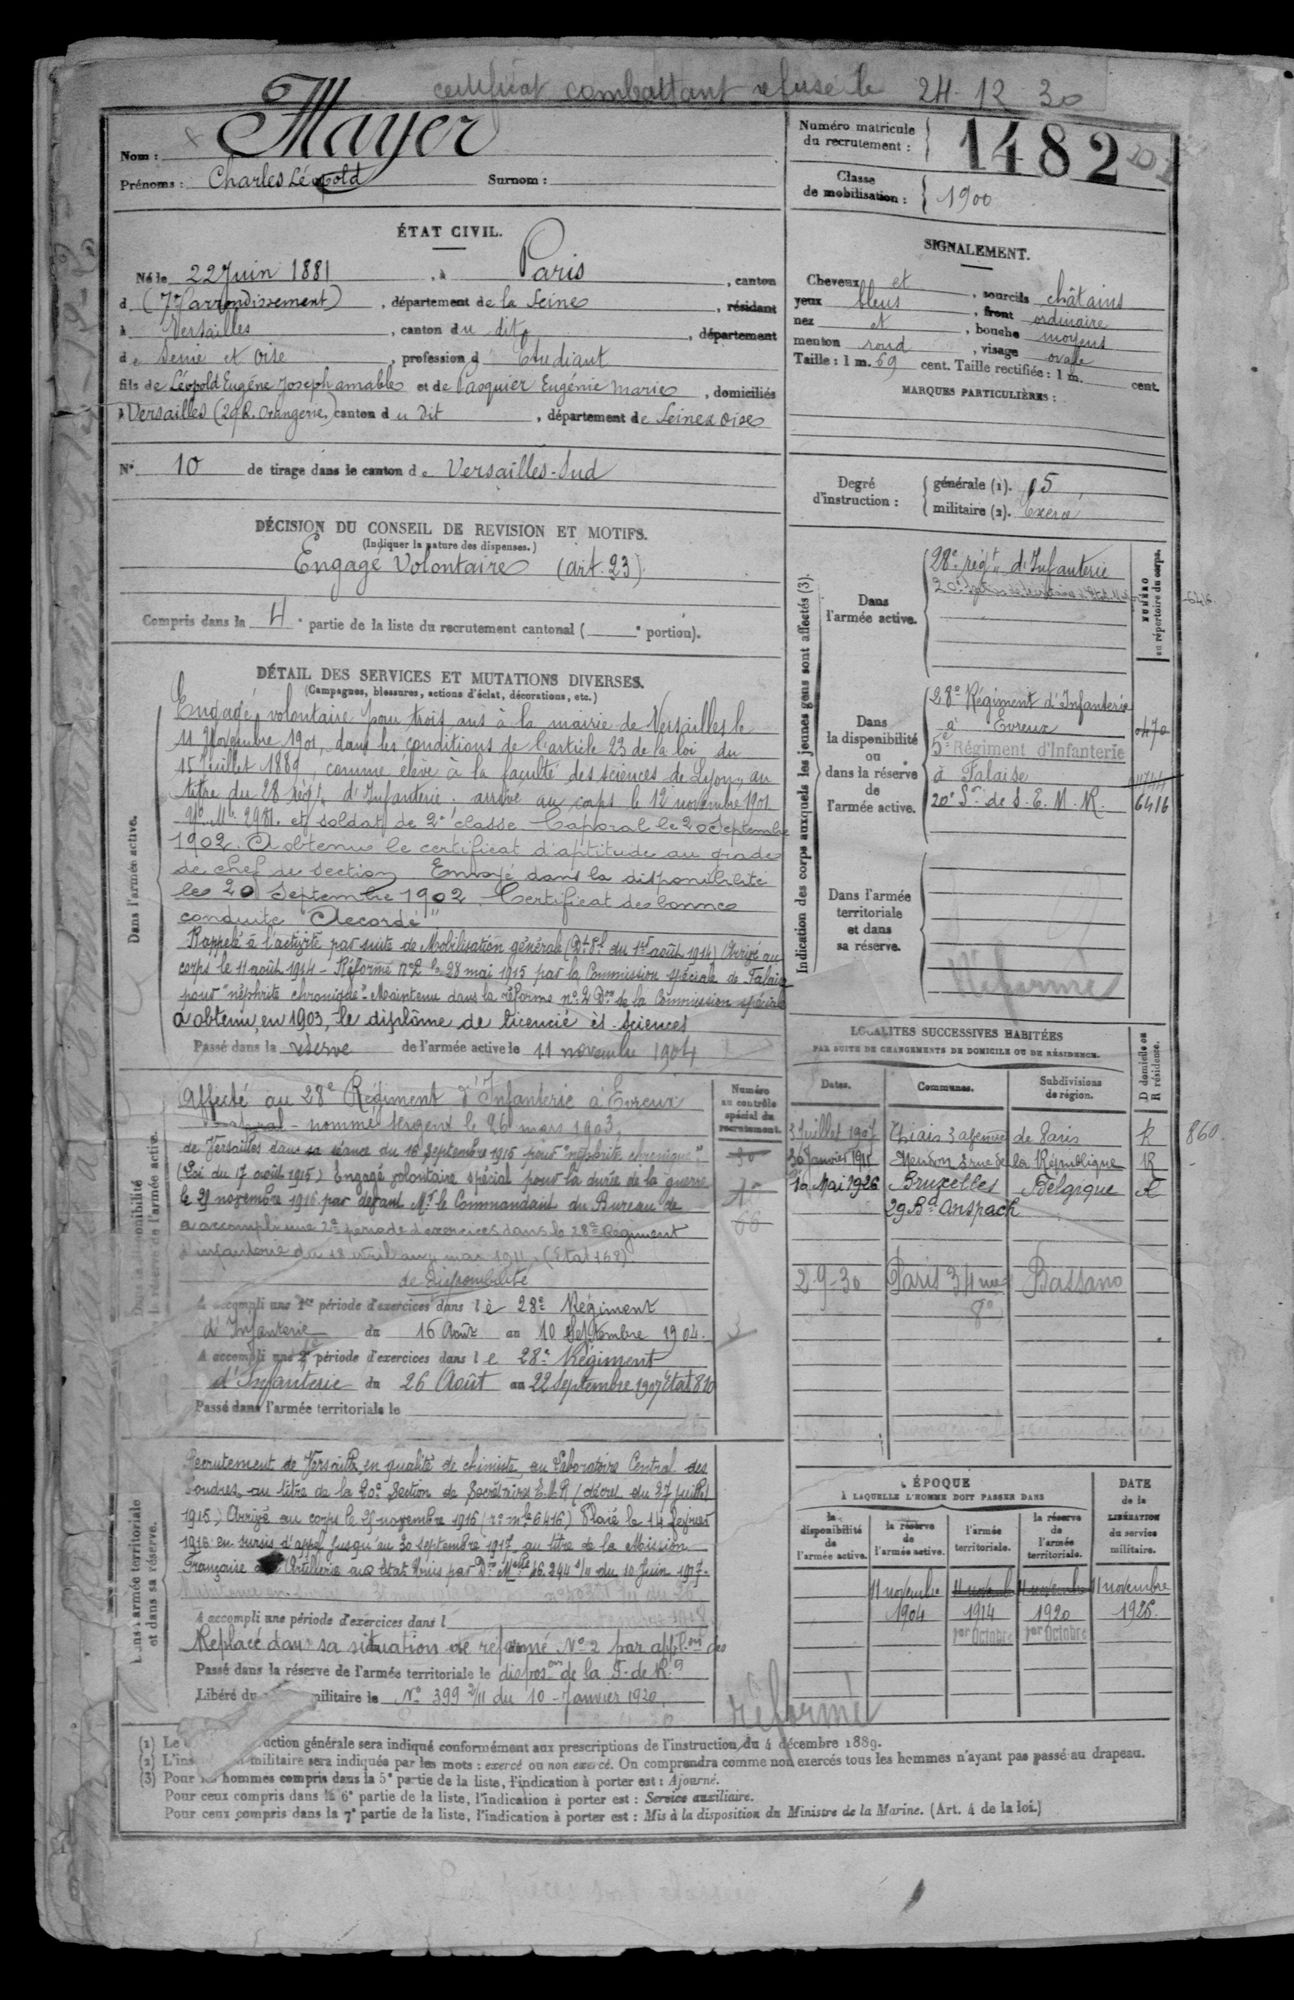 certificat combattant refusé le 24. 12 30
Nom : Mayer
Prénoms : Charles Léopold Surnom :
Numéro matricule
du recrutement : 1482
Classe
de mobilisation : 1900
ÉTAT CIVIL.
Né le 22 Juin 1881, à Paris, canton
d (7e arrondissement), département de la Seine, résidant
à Versailles, canton du dit, département
de Seine et Oise, profession d Etudiant
fils de Léopold Eugène Joseph amable et de Pasquier Eugénie Marie, domiciliés
à Versailles (29 R. Orangerie) canton du dit, département de Seine & Oise
N° 10 de tirage dans le canton de Versailles-Sud
SIGNALEMENT.
Cheveux et, sourcils châtains
yeux bleus, front ordinaire
nez et, bouche moyens
menton rond, visage ovale
Taille : 1 m. 69 cent. Taille rectifiée : 1 m. cent.
MARQUES PARTICULIÈRES :
Degré
d'instruction :
générale (1). 5
militaire (2). Exercé
DÉCISION DU CONSEIL DE REVISION ET MOTIFS.
(Indiquer la nature des dispenses.)
Engagé Volontaire (art. 23).
Compris dans la 4e partie de la liste du recrutement cantonal ( e portion).
DÉTAIL DES SERVICES ET MUTATIONS DIVERSES.
(Campagnes, blessures, actions d'éclat, décorations, etc.)
Dans l'armée active.
Engagé volontaire pour trois ans à la mairie de Versailles le
11 Novembre 1901, dans les conditions de l'article 23 de la loi du
15 Juillet 1889, comme élève à la faculté des sciences de Lyon, au
titre du 28 régt. d'Infanterie. arrivé au corps le 12 novembre 1901
No Mle 2981. et soldat de 2e classe. Caporal le 20 Septembre
1902. A obtenu le certificat d'aptitude au grade
de chef de section. Envoyé dans la disponibilité
le 20 Septembre 1902. Certificat de bonne
conduite "Accordé"
Rappelé à l'activité par suite de Mobilisation générale (Dt Pl du 1er août 1914) Arrivé au
corps le 11 août 1914 - Réformé n°2 le 28 mai 1915 par la Commission spéciale de Falaise
pour "néphrite chronique". Maintenu dans la réforme n°2 Don de la Commission spéciale
a obtenu en 1903, le diplôme de licencié ès-sciences
Passé dans la réserve de l'armée active le 11 novembre 1904
Affecté au 28e Régiment d'Infanterie à Evreux
nommé sergent le 26 mars 1903.
de Versailles dans sa séance du 16 Septembre 1915 pour "néphrite chronique"
(Loi du 17 août 1915) Engagé volontaire spécial pour la durée de la guerre
le 25 novembre 1916 par devant Mr le Commandant du Bureau de
a accompli une 2e période d'exercices dans le 28e Régiment
d'infanterie du 18 avril au mai 1911. (Etat 168).
de Disponibilité
A accompli une 1re période d'exercices dans le 28e Régiment
d'Infanterie du 16 Août au 10 Septembre 1904.
A accompli une 2e période d'exercices dans le 28e Régiment
d'Infanterie du 26 Août au 22 Septembre 1907 Etat 810
Passé dans l'armée territoriale le
Numéro
au contrôle
spécial du
recrutement.
30
66
3
Dans l'armée territoriale
et dans sa réserve.
Recrutement de Versailles, en qualité de chimiste, au Laboratoire Central des
Poudres au titre de la 20e Section de Secrétaires E.M.R (décret du 27 juillet
1915) Arrivé au corps le 25 novembre 1916 (n° mle 6416) Placé le 14 février
en sursis d'appel jusqu'au 30 septembre 1917 au titre de la Mission
Française d'Artillerie aux Etats Unis par Don Melle 16.244 du 10 Juin 1917.
A accompli une période d'exercices dans l
Replacé dans sa situation de réformé N°2 par applon des
Passé dans la réserve de l'armée territoriale le disposon de la
Libéré du militaire le N° 399 2/11 du 10 Janvier 1920.
réformé
Indication des corps auxquels les jeunes gens sont affectés (3).
NUMÉRO
au répertoire du corps.
Dans
l'armée active.
28e régt d'Infanterie
6416
Dans
la disponibilité
ou
dans la réserve
de
l'armée active.
28e Régiment d'Infanterie
à Evreux 0470
5e Régiment d'Infanterie
à Falaise
20e Son de S. E. M. R. 6416
Dans l'armée
territoriale
et dans
sa réserve.
Réformé
LOCALITÉS SUCCESSIVES HABITÉES
PAR SUITE DE CHANGEMENTS DE DOMICILE OU DE RÉSIDENCE.
Dates. Communes. Subdivisions
de région. D domicile ou
R résidence.
3 Juillet 1907 Thiais 3 avenue de Paris R 860
30 Janvier 1911 Meudon 8 rue de la République R
10 Mai 1926 Bruxelles Belgique R
29 Bd Anspach
2-9-30 Paris 34 rue Bassano
8e
ÉPOQUE
À LAQUELLE L'HOMME DOIT PASSER DANS
DATE
de la
LIBÉRATION
du service
militaire.
la
disponibilité
de
l'armée active.
la réserve
de
l'armée active.
l'armée
territoriale.
la réserve
de
l'armée
territoriale.
11 novembre 11 novemb 11 novembre 11 novembre
1904 1914 1920 1926.
1er Octobre 1er Octobre
(1) Le uction générale sera indiqué conformément aux prescriptions de l'instruction du 4 décembre 1889.
(2) L'ins militaire sera indiquée par les mots : exercé ou non exercé. On comprendra comme non exercés tous les hommes n'ayant pas passé au drapeau.
(3) Pour les hommes compris dans la 5e partie de la liste, l'indication à porter est : Ajourné.
Pour ceux compris dans la 6e partie de la liste, l'indication à porter est : Service auxiliaire.
Pour ceux compris dans la 7e partie de la liste, l'indication à porter est : Mis à la disposition du Ministre de la Marine. (Art. 4 de la loi.)